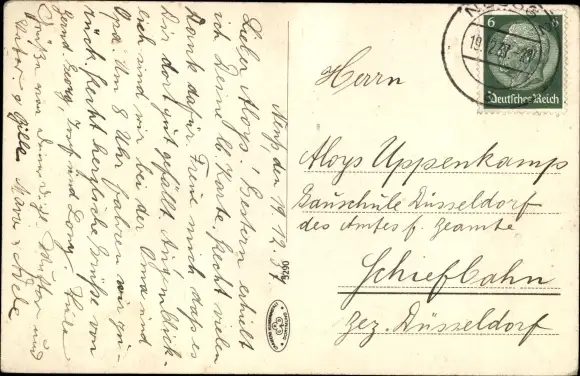 Neuß, den 19.12.37.
Lieber Aloys! Gestern erhielt
ich Deine lb. Karte. Recht vielen
Dank dafür. Freue mich daß es
Dir dort gut gefällt. Augenblick-
lich sind wir bei der Oma und
Opa. Um 8 Uhr fahren wir zu-
rück. Recht herzliche Grüße von
und Eure
Grüße von Mutter und
Vater. Maria & Adele
NEUSS
19.12.37.
6 6
Deutsches Reich
Herrn
Aloys Uppenkamp
Gauschule Düsseldorf
des Amtes f. Beamte
Schiefbahn
Bez. Düsseldorf